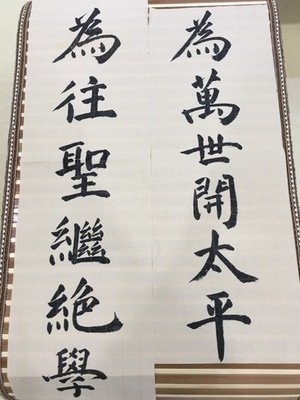 為往聖繼絶學
為萬世開太平